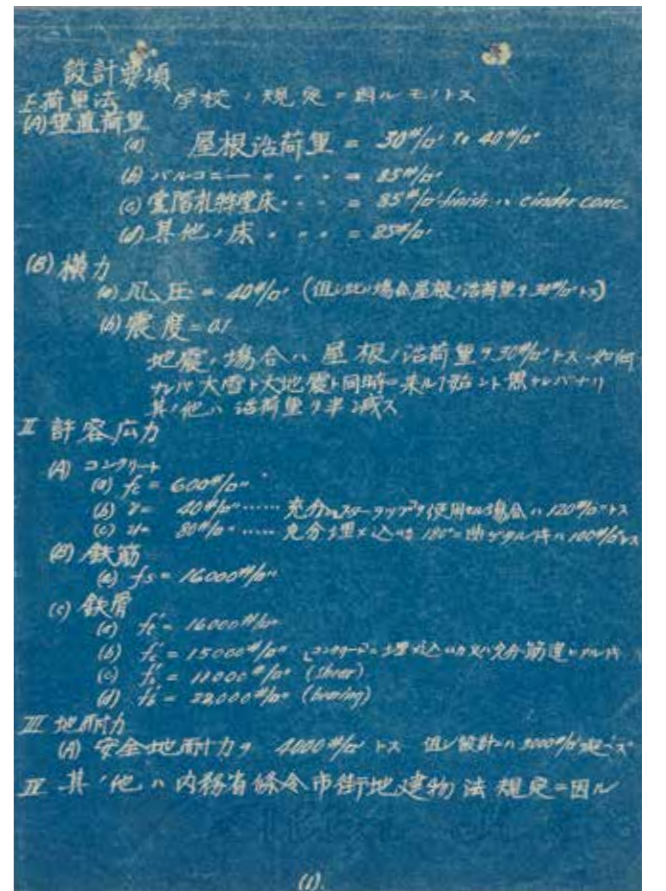 設計要項
I 荷重法 学校ノ規定ニ因ルモノトス
(A) 垂直荷重
(a) 屋根活荷重 = 30#/□' to 40#/□'
(b) バルコニー 〃 〃 〃 = 85#/□'
(c) 堂階礼拝堂床 〃 〃 = 85#/□' finish ハ cinder conc.
(d) 其他ノ床 〃 〃 〃 = 25#/□'
(B) 横力
(a) 風圧 = 40#/□' (但シ此ノ場合屋根ノ活荷重ヲ30#/□'トス)
(b) 震度 = 0.1
地震ノ場合ハ屋根ノ活荷重ヲ30#/□'トス 如何
ナレバ大雪ト大地震ト同時ニ来ル事殆ント無ケレバナリ
其ノ他ハ活荷重ヲ半減ス
II 許容応力
(A) コンクリート
(a) fc = 600#/□"
(b) v = 40#/□" ...... 充分スターラップヲ使用セル場合ハ120#/□"トス
(c) u = 80#/□" ...... 充分埋メ込ミ 180° 曲ゲタル時ハ100#/□"トス
(B) 鉄筋
(a) fs = 16000#/□"
(C) 鉄骨
(a) = 16000#/□"
(b) = 15000#/□" コンクリートニ埋メ込ムカ又ハ充分筋違ヒアル時
(c) = 12000#/□" (shear)
(d) = 22,000#/□" (bearing)
III 地耐力
(A) 安全地耐力ヲ 4000#/□' トス 但シ設計ニハ 3000#/□'
IV 其ノ他ハ内務省條令市街地建物法規定ニ因ル
(1).